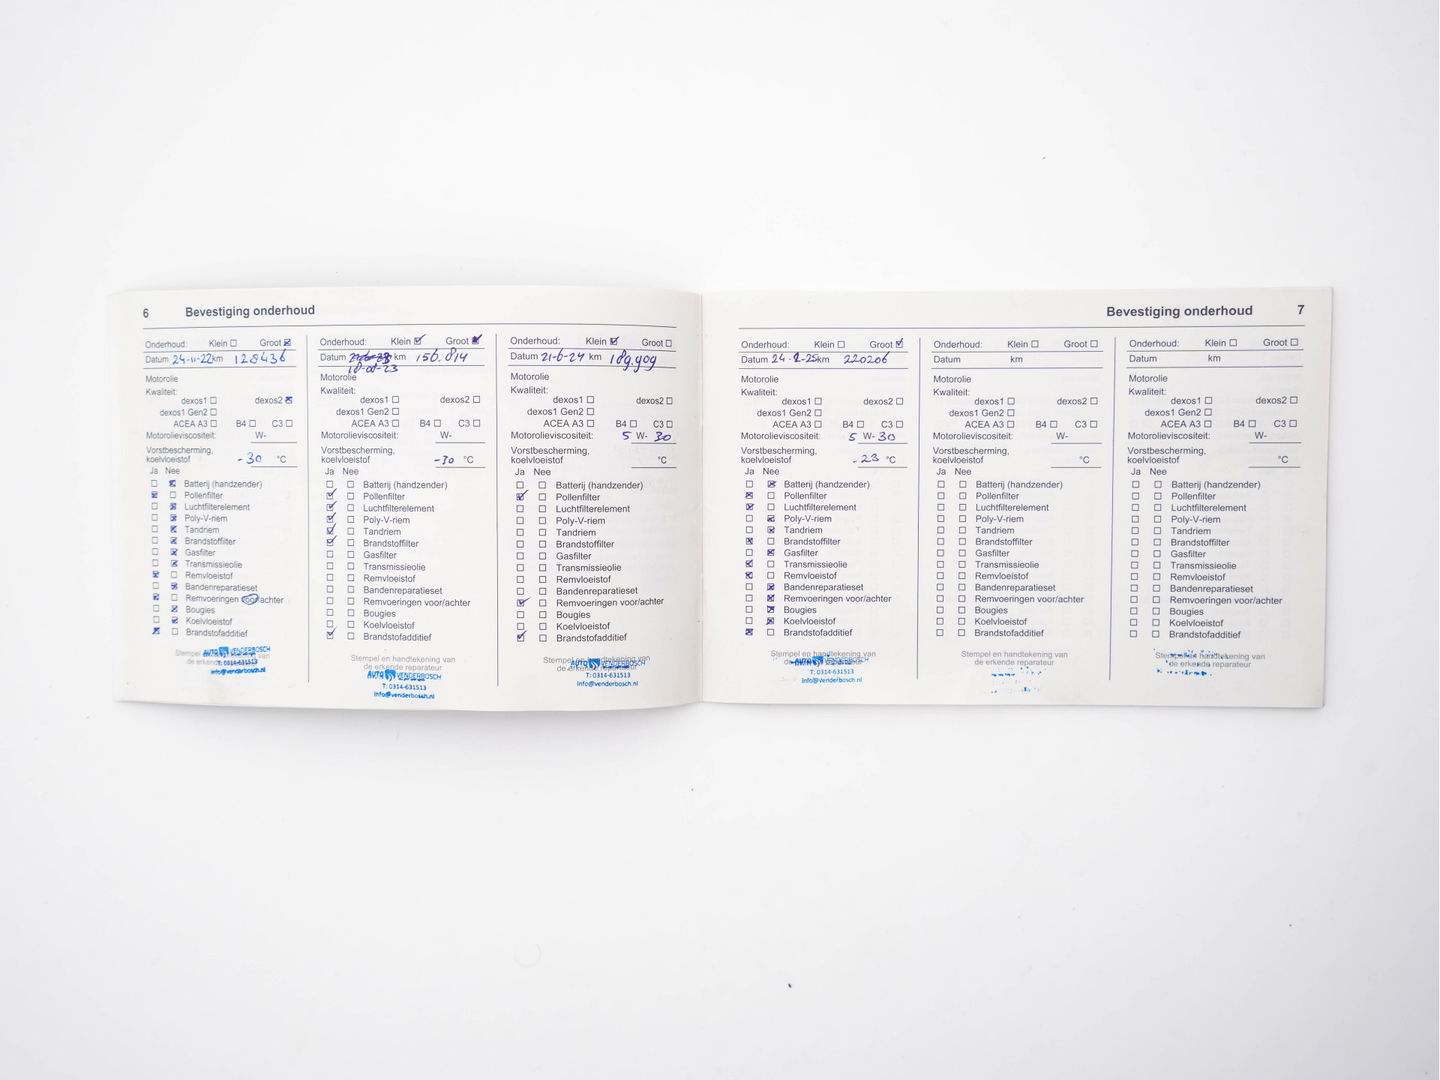 6 Bevestiging onderhoud
Onderhoud: Klein Groot
Datum 24-11-22 km 128436
Motorolie
Kwaliteit:
dexos1 dexos2
dexos1 Gen2
ACEA A3 B4 C3
Motorolieviscositeit: W-
Vorstbescherming,
koelvloeistof -30 °C
Ja Nee
Batterij (handzender)
Pollenfilter
Luchtfilterelement
Poly-V-riem
Tandriem
Brandstoffilter
Gasfilter
Transmissieolie
Remvloeistof
Bandenreparatieset
Remvoeringen voor/achter
Bougies
Koelvloeistof
Brandstofadditief
Stempel en handtekening van
de erkende
AUTO VENDERBOSCH
T: 0314-631513
info@venderbosch.nl
Onderhoud: Klein Groot
Datum km 156.814
18-08-23
Motorolie
Kwaliteit:
dexos1 dexos2
dexos1 Gen2
ACEA A3 B4 C3
Motorolieviscositeit: W-
Vorstbescherming,
koelvloeistof -30 °C
Ja Nee
Batterij (handzender)
Pollenfilter
Luchtfilterelement
Poly-V-riem
Tandriem
Brandstoffilter
Gasfilter
Transmissieolie
Remvloeistof
Bandenreparatieset
Remvoeringen voor/achter
Bougies
Koelvloeistof
Brandstofadditief
Stempel en handtekening van
de erkende reparateur
AUTO VENDERBOSCH
T: 0314-631513
info@venderbosch.nl
Onderhoud: Klein Groot
Datum 21-6-24 km 189.909
Motorolie
Kwaliteit:
dexos1 dexos2
dexos1 Gen2
ACEA A3 B4 C3
Motorolieviscositeit: 5 W- 30
Vorstbescherming,
koelvloeistof °C
Ja Nee
Batterij (handzender)
Pollenfilter
Luchtfilterelement
Poly-V-riem
Tandriem
Brandstoffilter
Gasfilter
Transmissieolie
Remvloeistof
Bandenreparatieset
Remvoeringen voor/achter
Bougies
Koelvloeistof
Brandstofadditief
Stempel en handtekening van
de erkende reparateur
AUTO VENDERBOSCH
T: 0314-631513
info@venderbosch.nl
Bevestiging onderhoud 7
Onderhoud: Klein Groot
Datum km 220206
Motorolie
Kwaliteit:
dexos1 dexos2
dexos1 Gen2
ACEA A3 B4 C3
Motorolieviscositeit: 5 W- 30
Vorstbescherming,
koelvloeistof -23 °C
Ja Nee
Batterij (handzender)
Pollenfilter
Luchtfilterelement
Poly-V-riem
Tandriem
Brandstoffilter
Gasfilter
Transmissieolie
Remvloeistof
Bandenreparatieset
Remvoeringen voor/achter
Bougies
Koelvloeistof
Brandstofadditief
Stempel en handtekening van
de erkende reparateur
AUTO VENDERBOSCH
T: 0314-631513
info@venderbosch.nl
Onderhoud: Klein Groot
Datum km
Motorolie
Kwaliteit:
dexos1 dexos2
dexos1 Gen2
ACEA A3 B4 C3
Motorolieviscositeit: W-
Vorstbescherming,
koelvloeistof °C
Ja Nee
Batterij (handzender)
Pollenfilter
Luchtfilterelement
Poly-V-riem
Tandriem
Brandstoffilter
Gasfilter
Transmissieolie
Remvloeistof
Bandenreparatieset
Remvoeringen voor/achter
Bougies
Koelvloeistof
Brandstofadditief
Stempel en handtekening van
de erkende reparateur
Onderhoud: Klein Groot
Datum km
Motorolie
Kwaliteit:
dexos1 dexos2
dexos1 Gen2
ACEA A3 B4 C3
Motorolieviscositeit: W-
Vorstbescherming,
koelvloeistof °C
Ja Nee
Batterij (handzender)
Pollenfilter
Luchtfilterelement
Poly-V-riem
Tandriem
Brandstoffilter
Gasfilter
Transmissieolie
Remvloeistof
Bandenreparatieset
Remvoeringen voor/achter
Bougies
Koelvloeistof
Brandstofadditief
Stempel en handtekening van
de erkende reparateur